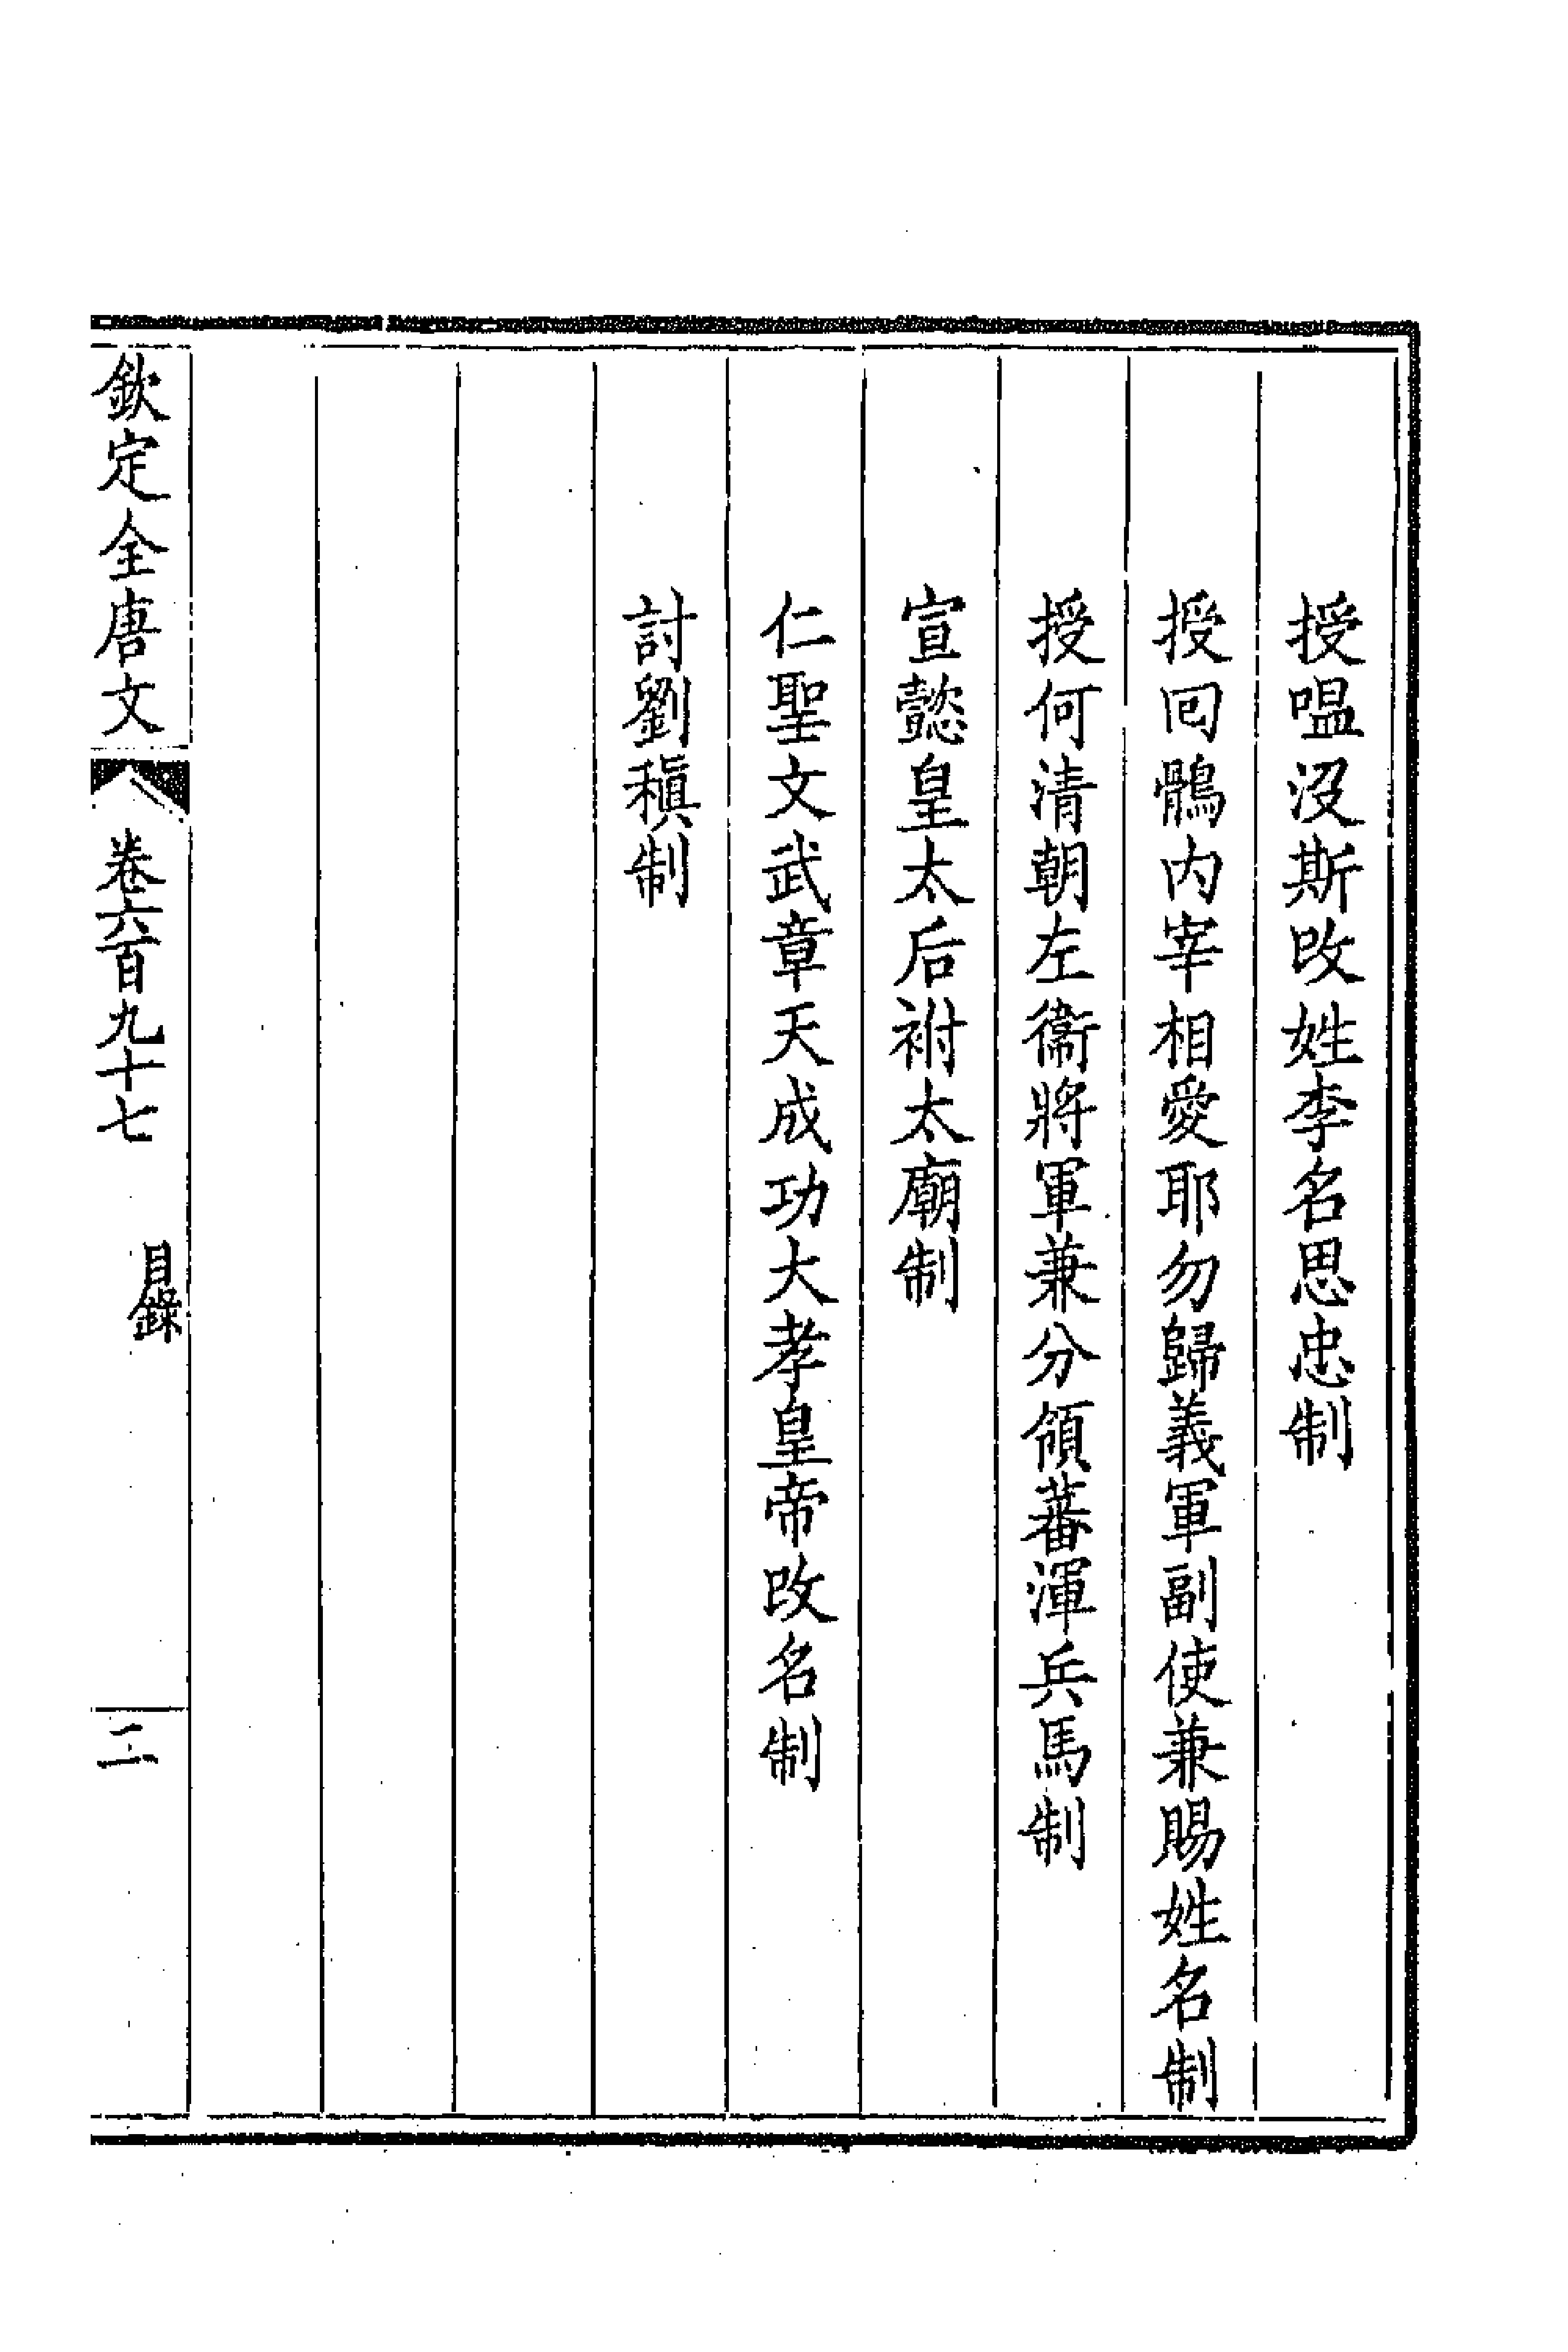 授嗢沒斯改姓李名思忠制
授回鶻内宰相愛耶勿歸義軍副使兼賜姓名制
授何清朝左衞將軍兼分領蕃渾兵馬制
宣懿皇太后祔太廟制
仁聖文武章天成功大孝皇帝改名制
討劉稹制
欽定全唐文 卷六百九十七 目錄 二